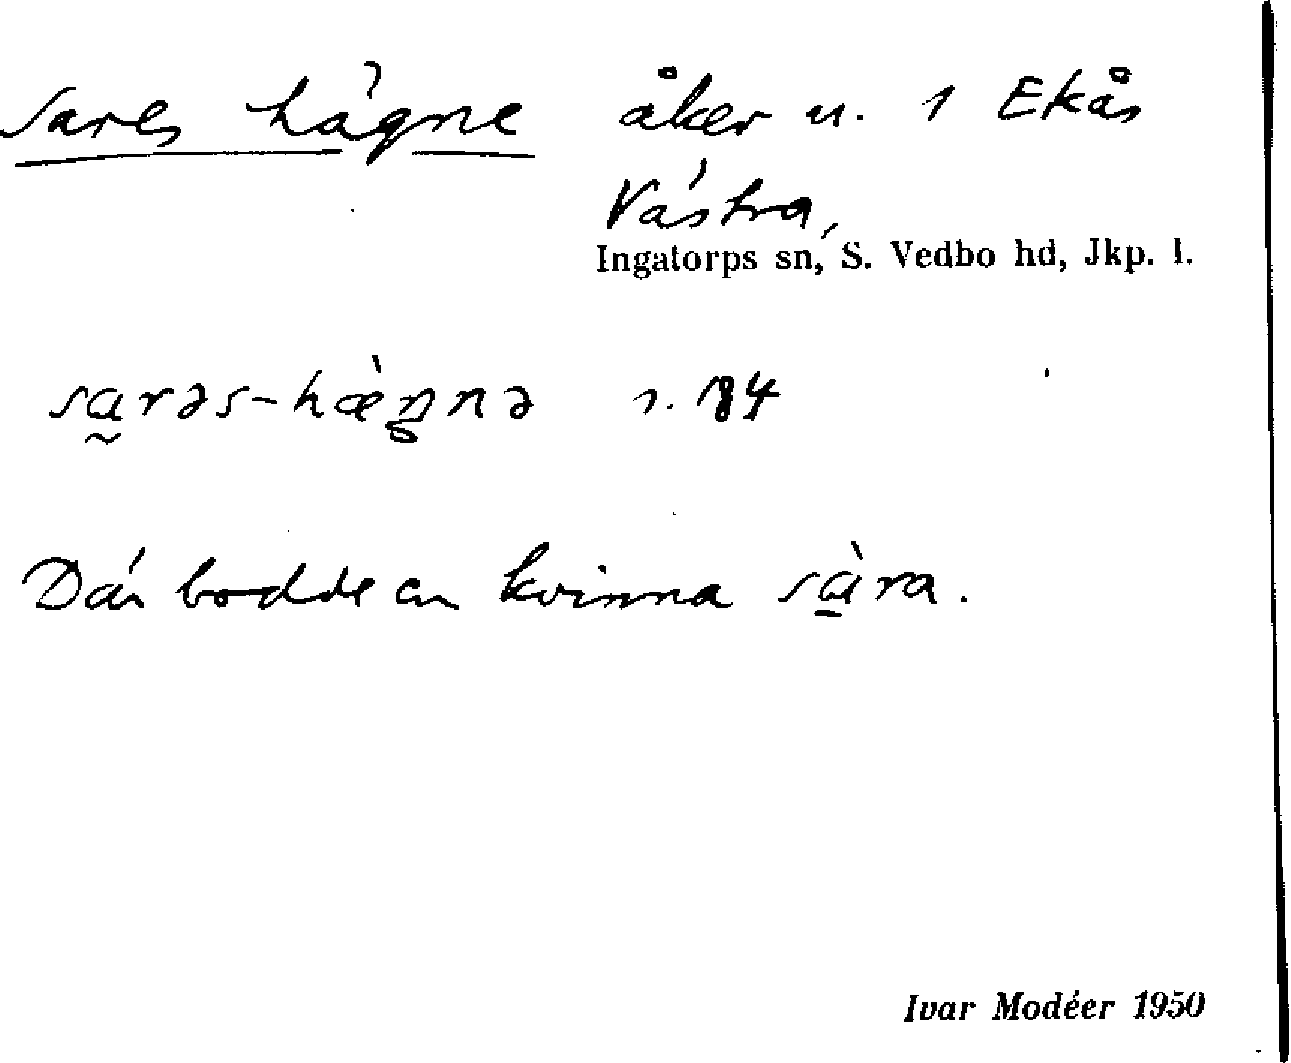 Sares hägne åker u. 1 Ekås
Västra,
Ingatorps sn, S. Vedbo hd, Jkp. l.
sa̰rəs-hæ̀ŋnə 184
Där bodde en kvinna sà̱ra.
Ivar Modéer 1950